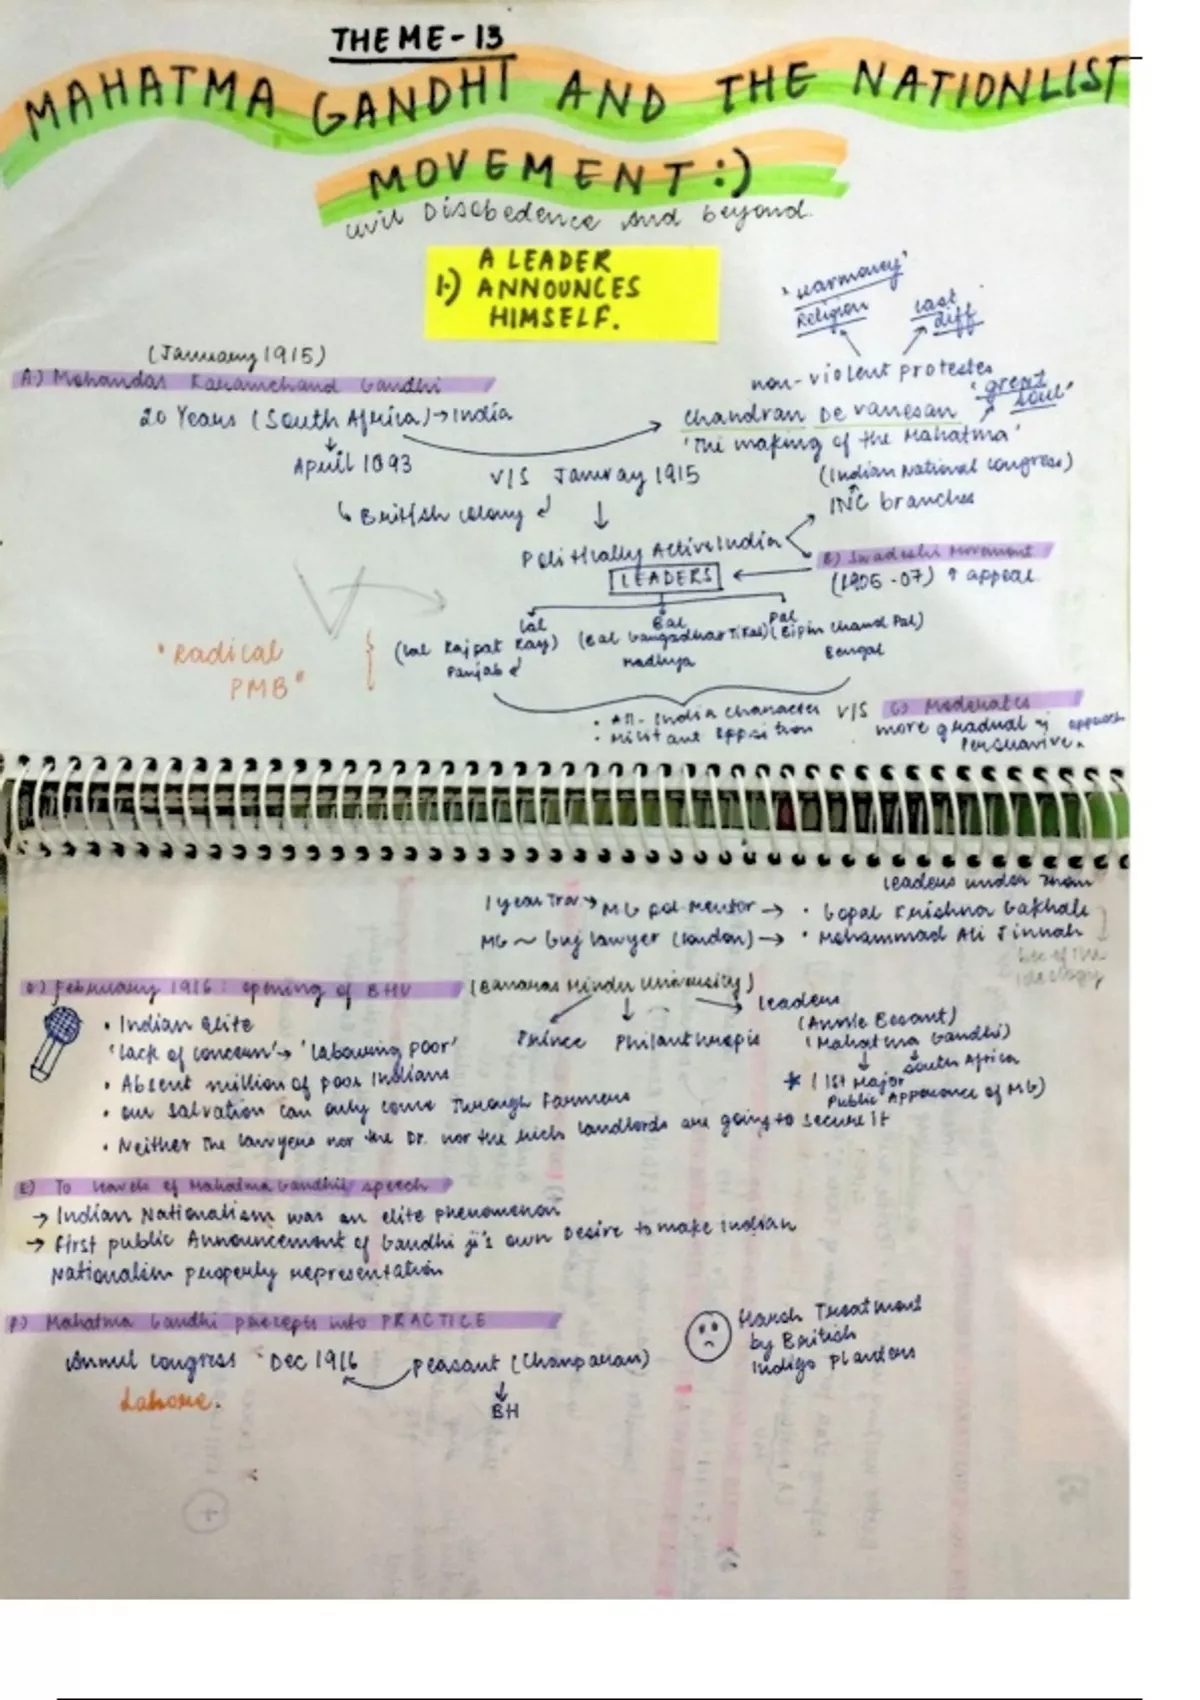 THEME-13
MAHATMA GANDHI AND THE NATIONLIST
MOVEMENT:)
civil Disobedence and beyond.
1.) A LEADER
ANNOUNCES
HIMSELF.
'Harmoney'
Religion
cast
diff
(January 1915)
A.) Mohandas Karamchand Gandhi
non-violent protestes
'great
soul'
20 Years (South Africa)→India
Chandran De vanesan
'The making of the Mahatma'
April 1893
V/S January 1915
(Indian National Congress)
INC branches
↳ British colony
Politically Active India
B) Swadeshi Movement
(1905-07) ↑ appeal
LEADERS
Lal
Bal
Pal
(Lal Rajpat Ray)
Panjab
(Bal Gangadhar Tikal)
Madhya
(Bipin Chand Pal)
Bengal
"Radical
PMB"
• All-India character
• Militant opposition
V/S
C) Moderates
more gradual
approach
Persuavive.
Leaders under
1 year → MG pol Mentor → • Gopal Krishna Gokhale
MG ~ Guj lawyer (London) → • Mohammad Ali Jinnah
ideology
D) February 1916: opening of BHU (Banaras Hindu University)
• Indian elite
'lack of concern' → 'labouring poor'
• Absent million of poor Indians
• our salvation can only come Through Farmers
• Neither the lawyers nor the Dr. nor the rich landlords are going to secure it
Prince
Philanthropis
Leaders
(Annie Besant)
(Mahatma Gandhi)
South Africa
* (1st Major
Public Apperance of MG)
E) To of Mahatma Gandhi's speech
→ Indian Nationalism was an elite phenomenon
→ First public Announcement of Gandhi ji's own Desire to make Indian
Nationalism properly representation
F) Mahatma Gandhi precepts into PRACTICE
Annul Congress Dec 1916
Peasant (Champaran)
Lahore.
BH
Harsh Treatment
by British
Indigo planters